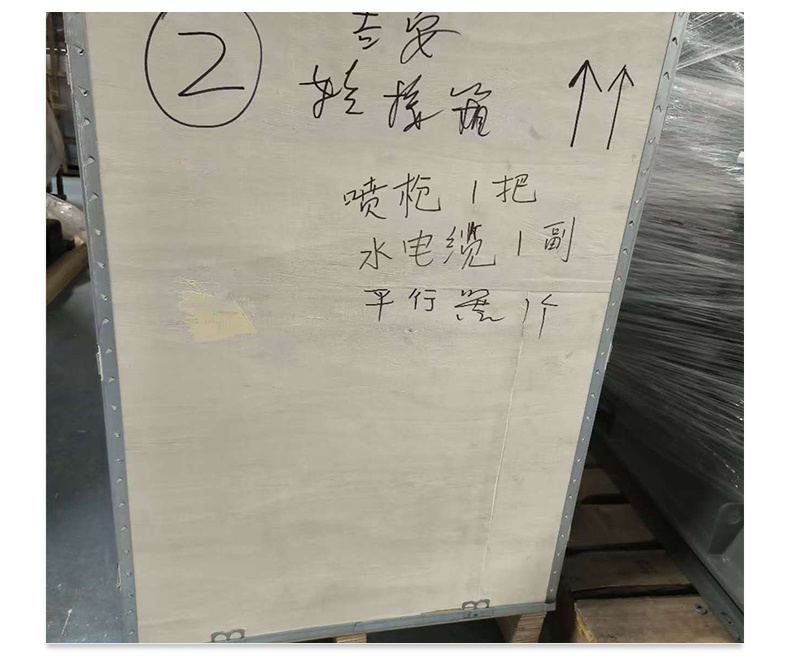 ②
吉安
转接箱
喷枪1把
水电缆1副
平行器1个